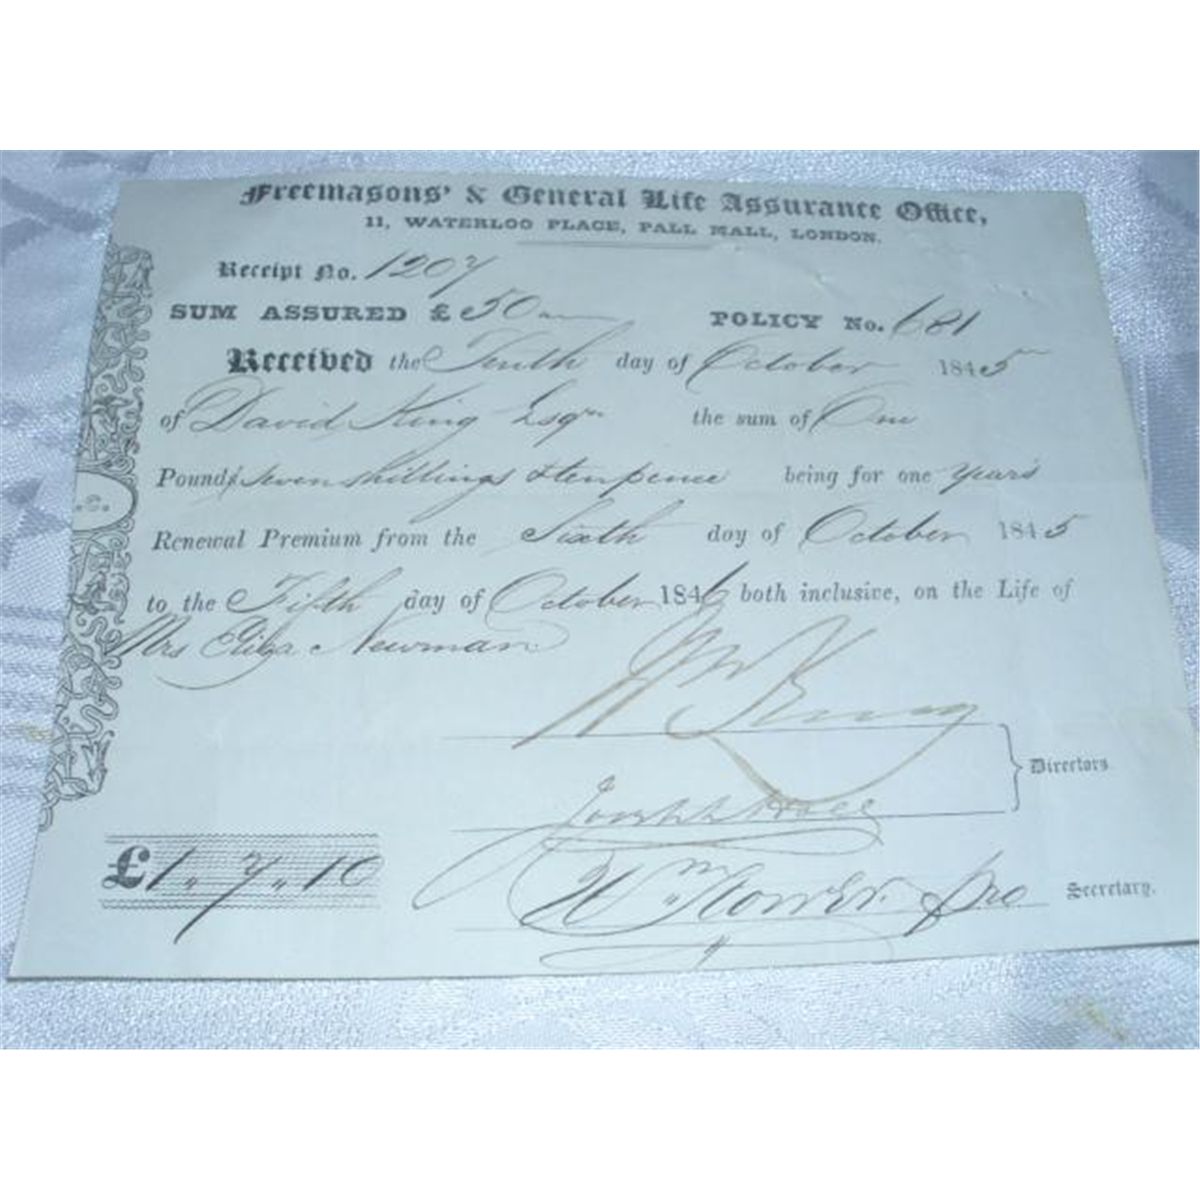 Freemasons' & General Life Assurance Office,
11, WATERLOO PLACE, PALL MALL, LONDON.
Receipt No. 1207
SUM ASSURED £ 50 POLICY No. 681
Received the Tenth day of October 1845
of David King Esqr the sum of One
Pound seven shillings & ten pence being for one years
Renewal Premium from the Sixth day of October 1845
to the Fifth day of October 1846 both inclusive, on the Life of
Mrs Eliza Newman
Wm King
Directors
£1,,7,,10
Secretary.